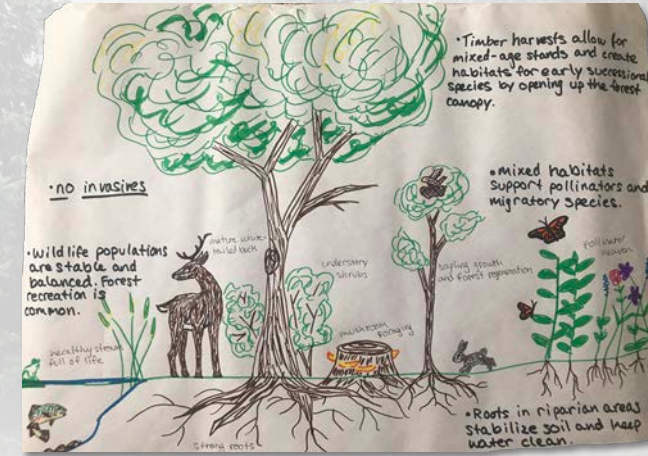 •Timber harvests allow for
mixed-age stands and create
habitats for early successional
species by opening up the forest
canopy.
•no invasives
•mixed habitats
support pollinators and
migratory species.
•Wildlife populations
are stable and
balanced. Forest
recreation is
common.
mature white-
tailed buck
understory
shrubs
sapling growth
and forest regeneration
pollinator
heaven
mushroom
foraging
healthy stream
full of life
strong roots
•Roots in riparian areas
stabilize soil and keep
water clean.